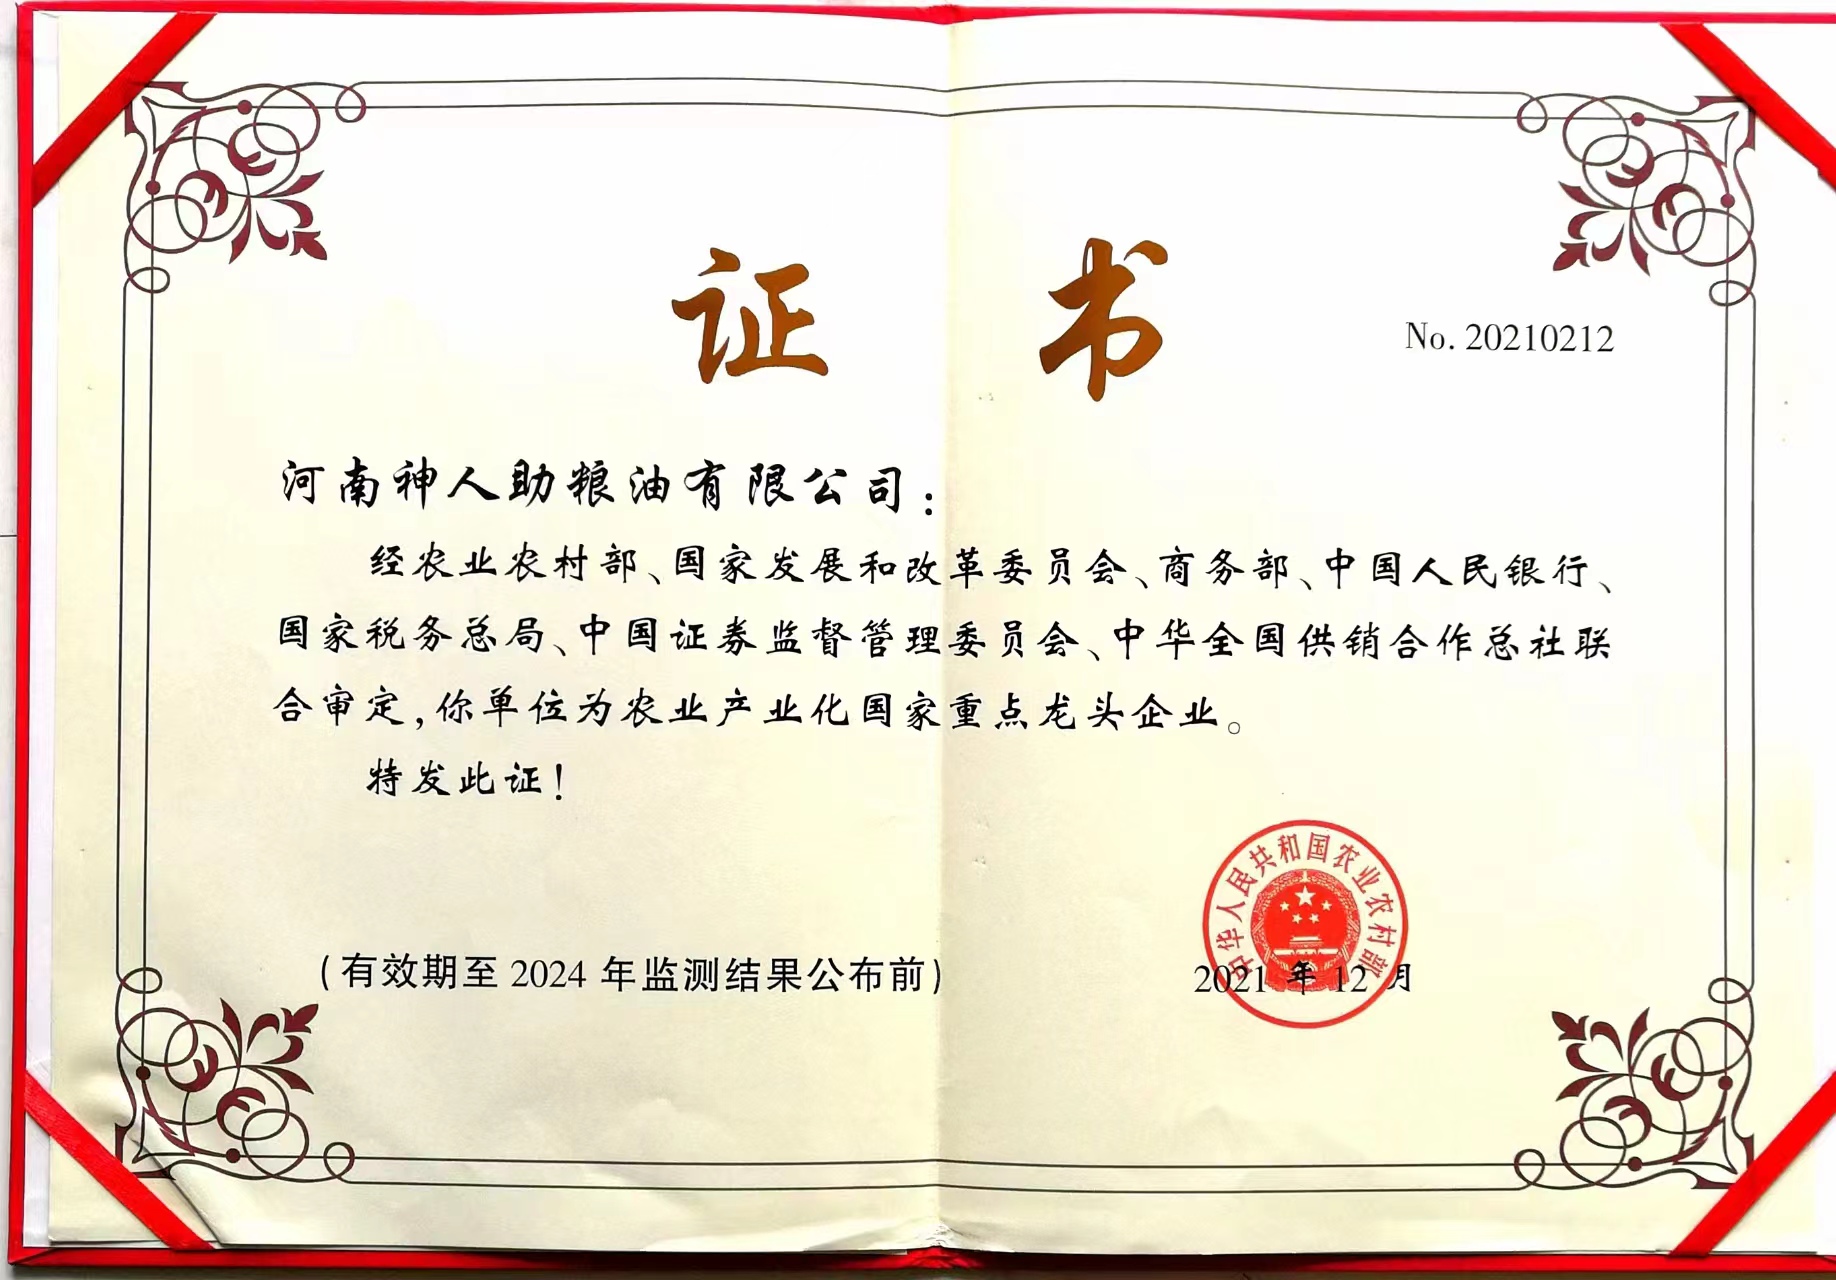 证书
No. 20210212
河南神人助粮油有限公司：
经农业农村部、国家发展和改革委员会、商务部、中国人民银行、
国家税务总局、中国证券监督管理委员会、中华全国供销合作总社联
合审定，你单位为农业产业化国家重点龙头企业。
特发此证！
中华人民共和国农业农村部
（有效期至 2024 年监测结果公布前）
2021 年 12 月